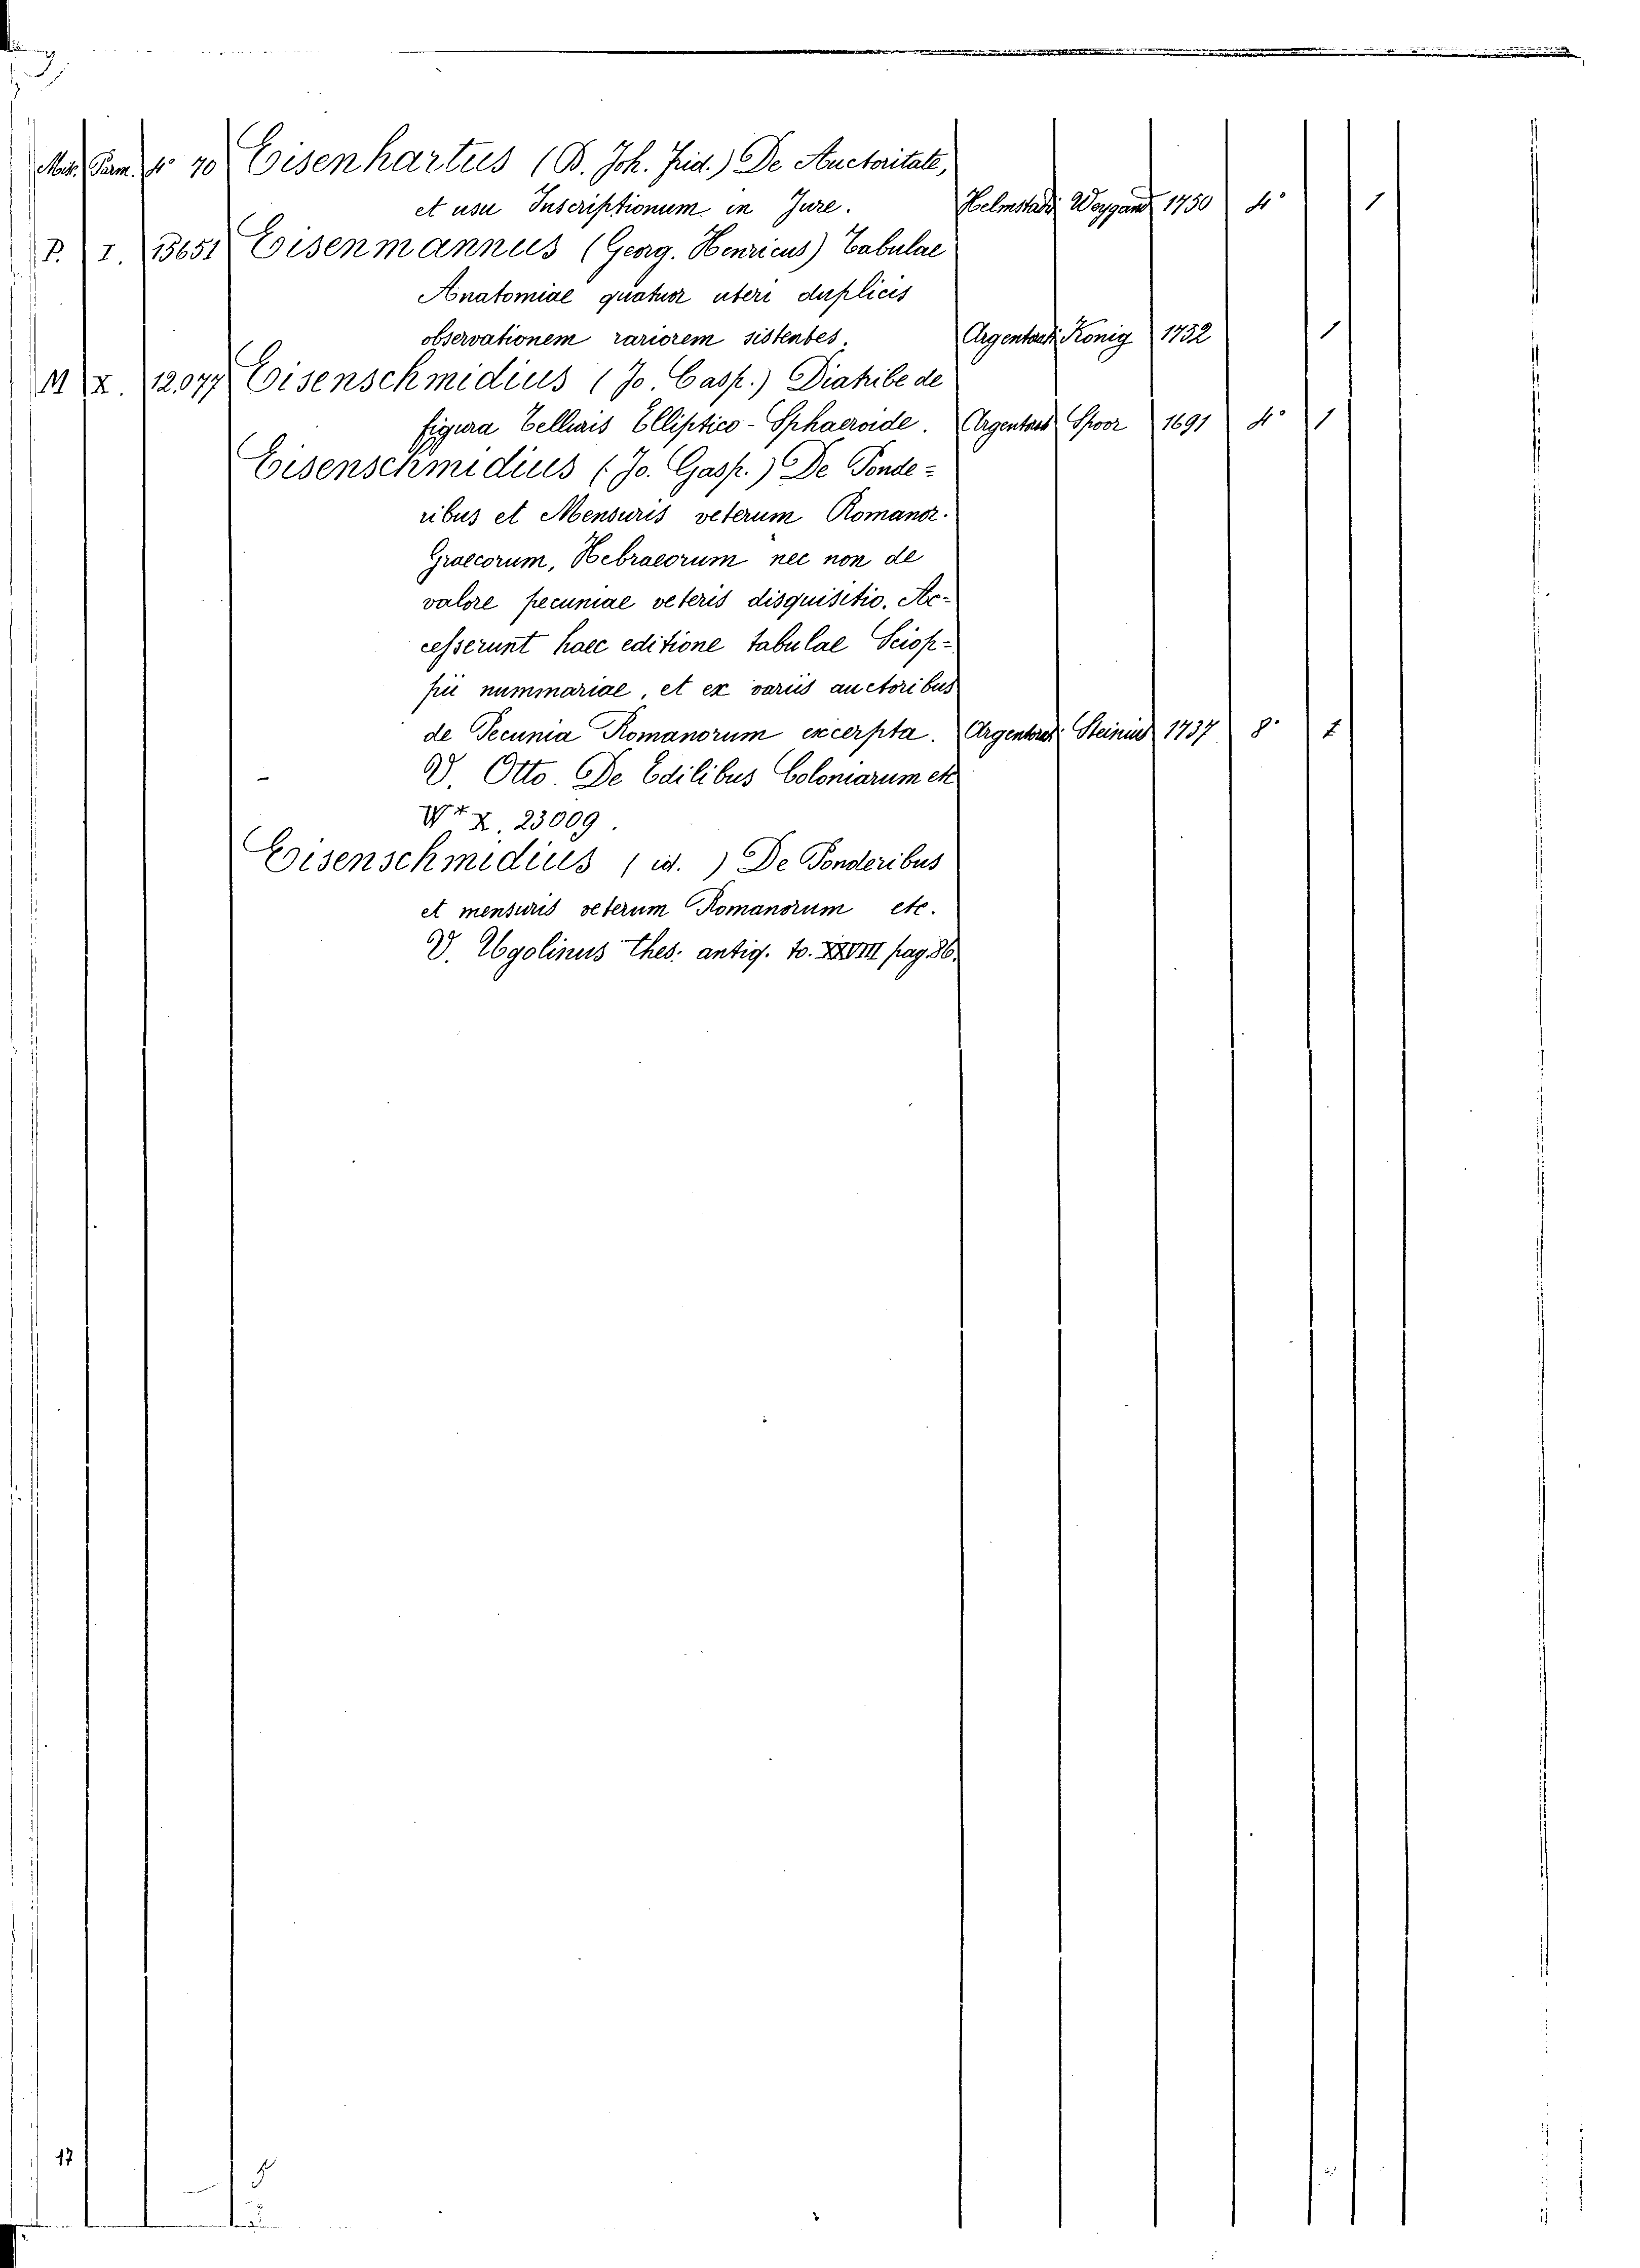 Mis. Parm. 4° 70 Eisenhartus (B. Joh. Frid.) De Auctoritate,
et usu Inscriptionum in Jure. Helmstadi Weygand 1750 4° 1
P. I. 13651 Eisenmannus (Georg. Henricus) Tabulae
Anatomiae quatuor uteri duplicis
observationem rariorem sistentes. Argentorati König 1752 1
M X. 12077 Eisenschmidius (Jo. Casp.) Diatribe de
figura Telluris Elliptico-Sphaeroide. Argentorat Spoor 1691 4° 1
Eisenschmidius (Jo. Gasp.) De Ponde=
ribus et Mensuris veterum Romanor.
Graecorum, Hebraeorum nec non de
valore pecuniae veteris disquisitio. Ac=
cesserunt haec editione tabulae Sciop=
pii nummariae, et ex variis auctoribus
de Pecunia Romanorum excerpta. Argentorat. Steinius 1737 8° 1
V. Otto. De Edilibus Coloniarum etc
X. 23009.
Eisenschmidius (id.) De Ponderibus
et mensuris veterum Romanorum etc.
V. Ugolinus Thes. antiq. to. XXVIII pag. 86.
17